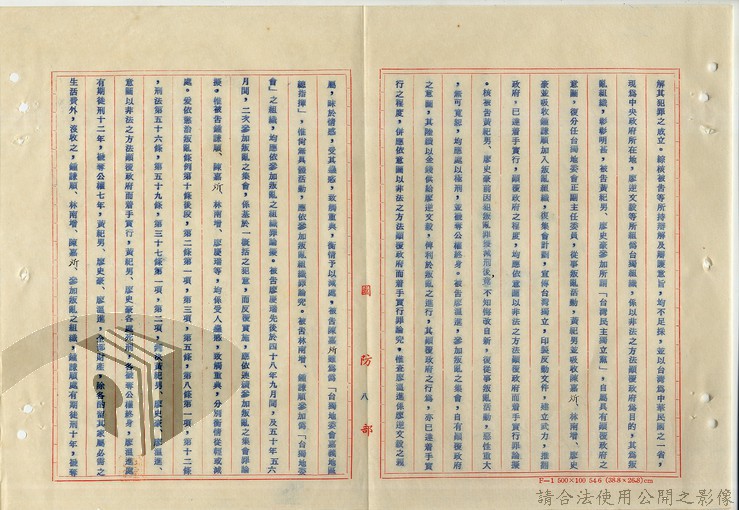 解其犯罪之成立。綜核被告等所持辯解及辯護意旨,均不足採,並以台灣為中華民國之一省,
現為中央政府所在地,廖逆文毅等所組偽台獨組織,係以非法之方法顛覆政府為目的,其為叛
亂組織,彰彰明甚,被告黃紀男、廖史豪參加所謂「台灣民主獨立黨」,自屬具有顛覆政府之
意圖,復分任台獨地委會正副主任委員,從事叛亂活動,黃紀男並吸收陳嘉炘、林南增、廖史
豪並吸收鍾謙順加入叛亂組織,復集會計劃,宣傳台灣獨立,印製反動文件,建立武力,推翻
政府,已達着手實行,顛覆政府之程度,均應依意圖以非法之方法顛覆政府而着手實行罪論擬
。核被告黃紀男、廖史豪前因組叛亂罪 減刑後,不知悔改自新,復從事叛亂活動,惡性重大
,無可寬宥,均應處以極刑,並褫奪公權終身。被告廖溫進,參加叛亂之集會,自有顛覆政府
之意圖,其陸續以金錢供給廖逆文毅,俾利於叛亂之進行,其顛覆政府之行為,亦已達着手實
行之程度,併應依意圖以非法之方法顛覆政府而着手實行罪論究。惟查廖溫進係廖逆文毅之親
屬,昧於情感,受其蠱惑,致觸重典,衡情予以減處,被告陳嘉炘雖為偽「台獨地委會嘉義地區
總指揮」,惟尚無具體活動,應依參加叛亂組織罪論究。被告林南增、鍾謙順參加偽「台獨地委
會」之組織,均應依參加叛亂之組織罪論擬。被告廖慶瑞先後於四十八年九月間,及五十年五六
月間,二次參加叛亂之集會,係基於一概括之犯意,而反覆實施,應依連續參加叛亂之集會罪論
擬。惟被告鍾謙順、陳嘉炘、林南增、廖慶瑞等,均係受人蠱惑,致觸重典,分別衡情從輕或減
處。爰依懲治叛亂條例第十條後段,第二條第一項,第三項,第五條,第八條第一項,第十二條
,刑法第五十六條,第五十九條,第三十七條第一項,第二項, 黃紀男、廖史豪、廖溫進、
意圖以非法之方法顛覆政府而着手實行,黃紀男、廖史豪各處死刑,各褫奪公權終身,廖溫進處
有期徒刑十二年,褫奪公權七年,黃紀男、廖史豪、廖溫進,全部財產,除各酌留其家屬必需之
生活費外,沒收之,鍾謙順、林南增、陳嘉炘、參加叛亂之組織,鍾謙順處有期徒刑十年,褫奪
國防部
八
F—1 500×100 54.6 (38.8×26.8)cm
請合法使用公開之影像